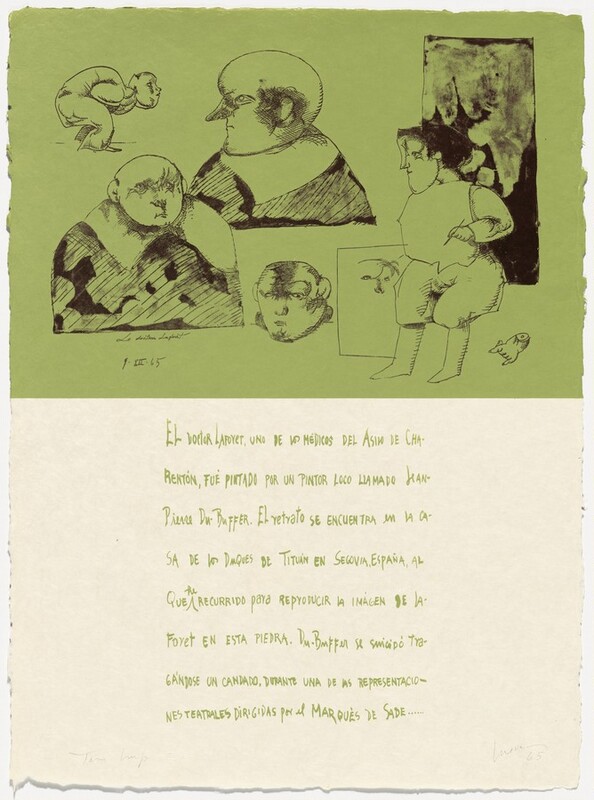 1-III-65
EL DOCTOR LAFOYET, UNO DE LOS MÉDICOS DEL ASILO DE CHA-
RENTÓN, FUÉ PINTADO POR UN PINTOR LOCO LLAMADO JEAN-
PIERRE DU-BUFFER. El retrato SE ENCUENTRA en la CA-
SA DE los DUQUES DE TITUÁN EN SEGOVIA, ESPAÑA, AL
QUE HE RECURRIDO para REPRODUCIR LA IMÁGEN DE LA-
FOYET EN ESTA PIEDRA. DU-BUFFER se suicidó TRA-
GÁNDOSE UN CANDADO, DURANTE UNA DE LAS REPRESENTACIO-
NES TEATRALES DIRIGIDAS por el MARQUÉS DE SADE......
65